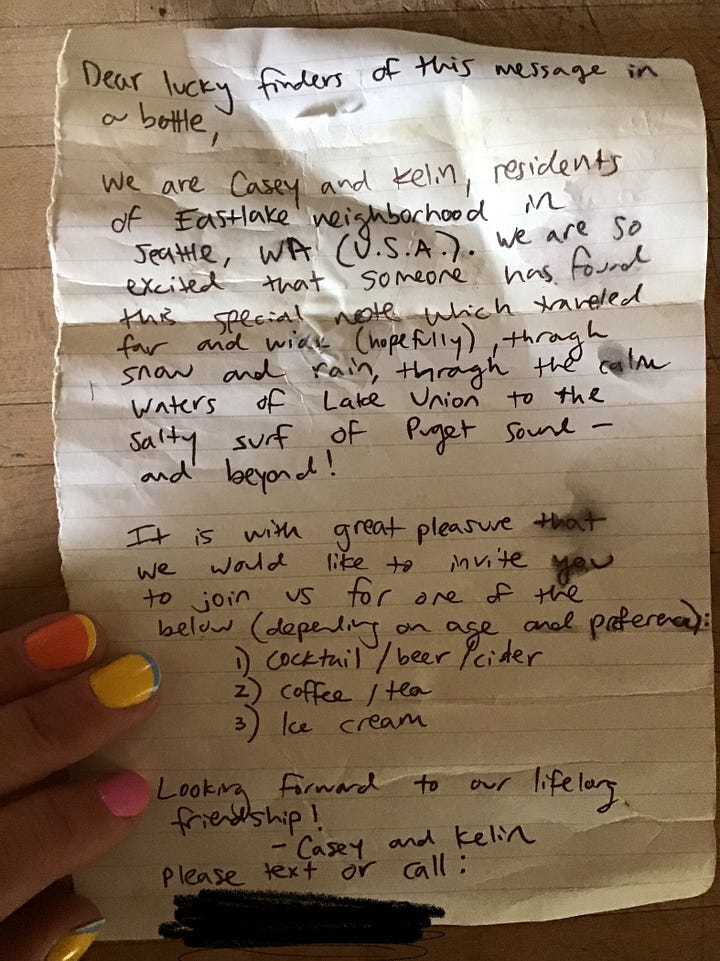 Dear lucky finders of this message in
a bottle,
We are Casey and Kelin, residents
of Eastlake neighborhood in
Seattle, WA (U.S.A.). We are so
excited that someone has found
this special note which traveled
far and wide (hopefully), through
snow and rain, through the calm
waters of Lake Union to the
salty surf of Puget Sound –
and beyond!
It is with great pleasure that
we would like to invite you
to join us for one of the
below (depending on age and preference):
1) cocktail / beer / cider
2) coffee / tea
3) Ice cream
Looking forward to our lifelong
friendship!
- Casey and Kelin
Please text or call: